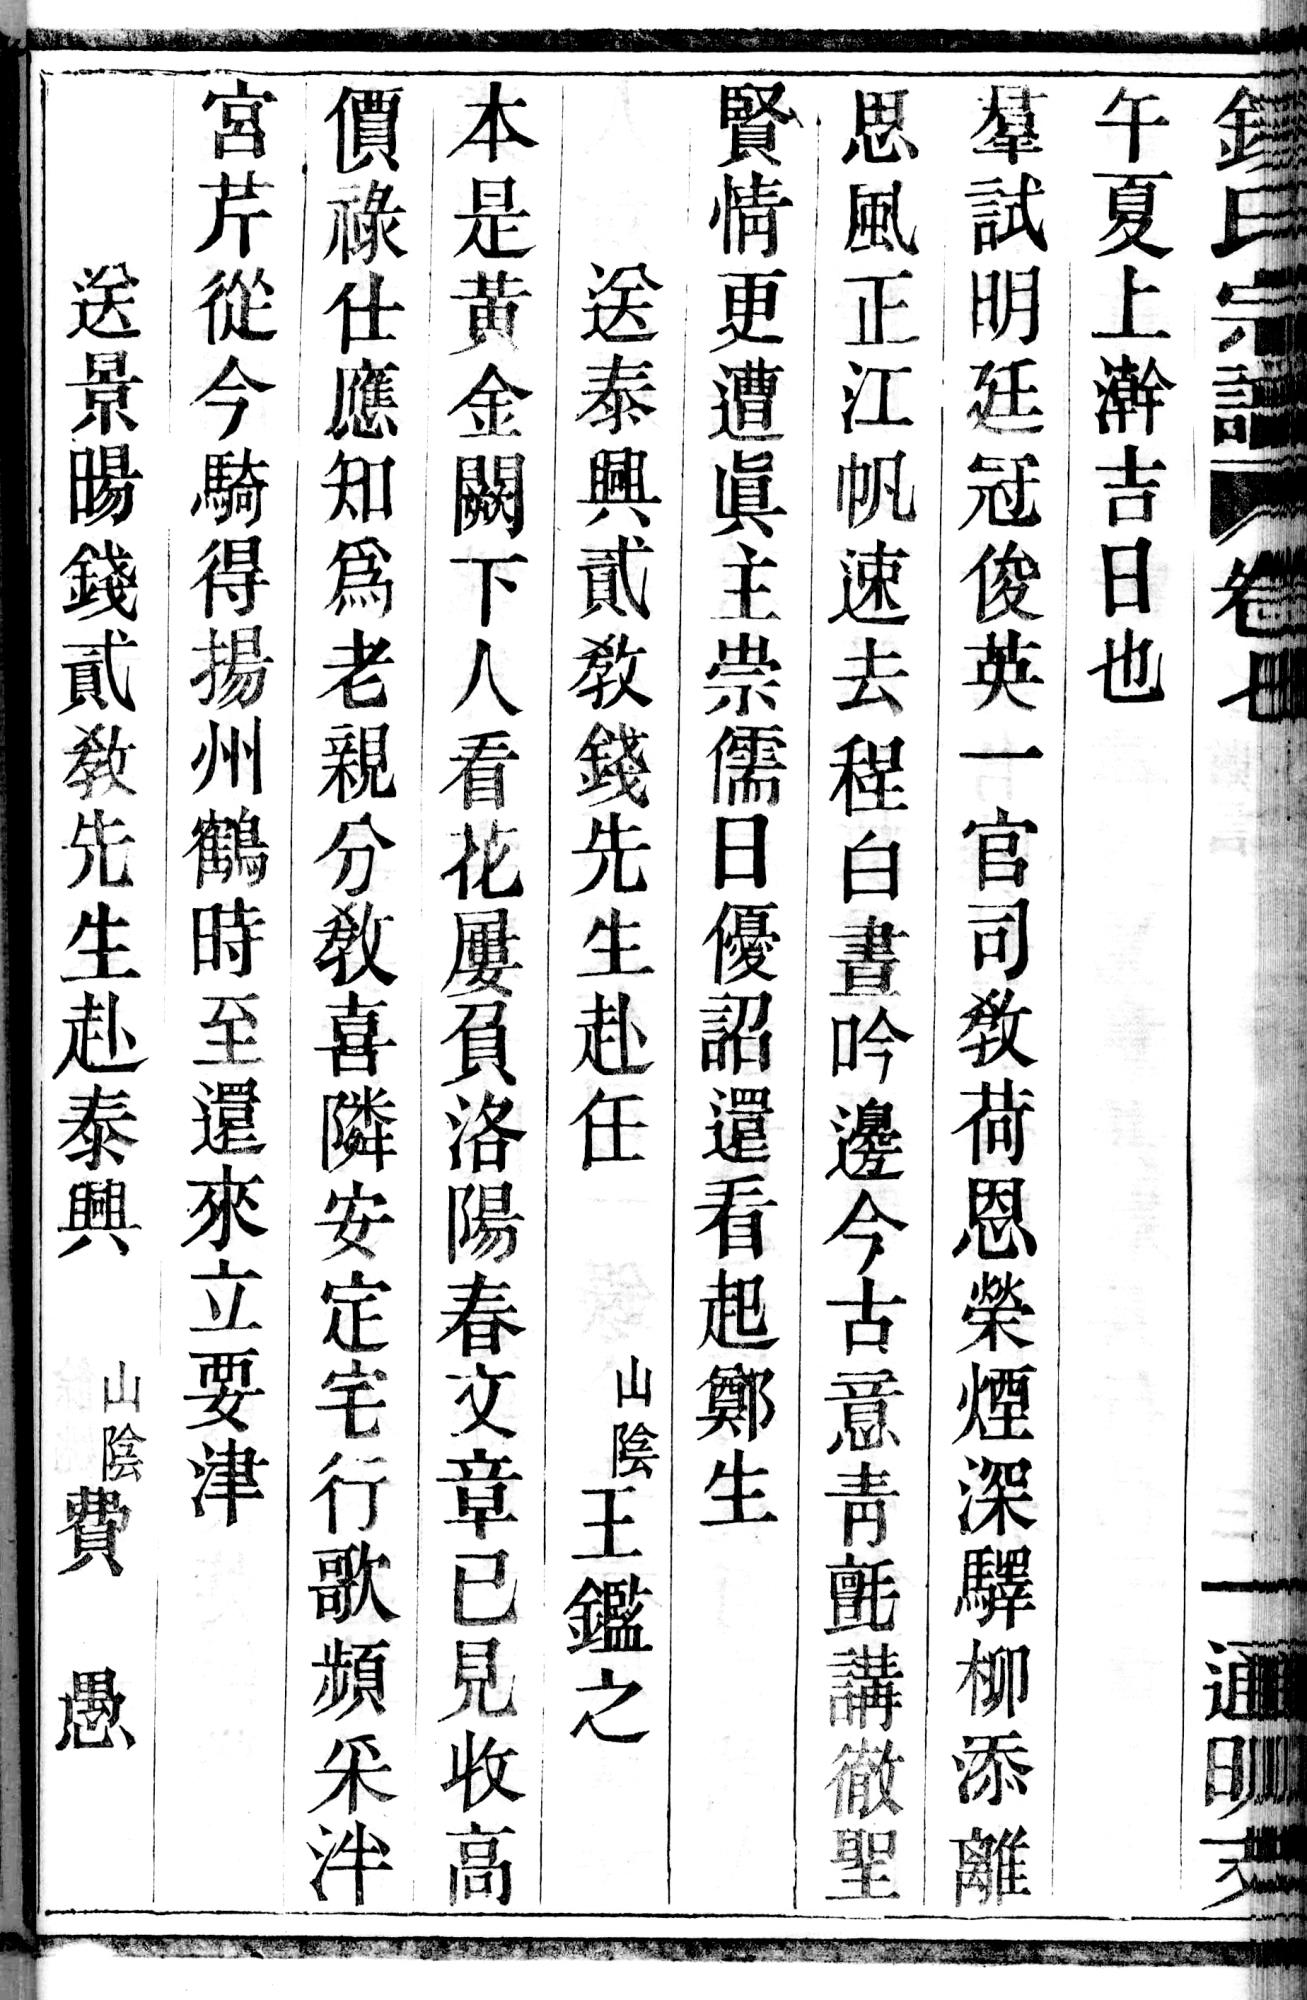 錢氏宗譜 卷七 一 通明支
午夏上澣吉日也
羣試明廷冠俊英一官司敎荷恩榮煙深驛柳添離
思風正江帆速去程白晝吟邊今古意靑氈講徹聖
賢情更遭眞主崇儒日優詔還看起鄭生
送泰興貳敎錢先生赴任 山陰王鑑之
本是黃金闕下人看花屢負洛陽春文章已見收高
價祿仕應知爲老親分敎喜隣安定宅行歌頻采泮
宮芹從今騎得揚州鶴時至還來立要津
送景暘錢貳敎先生赴泰興 山陰費 愚